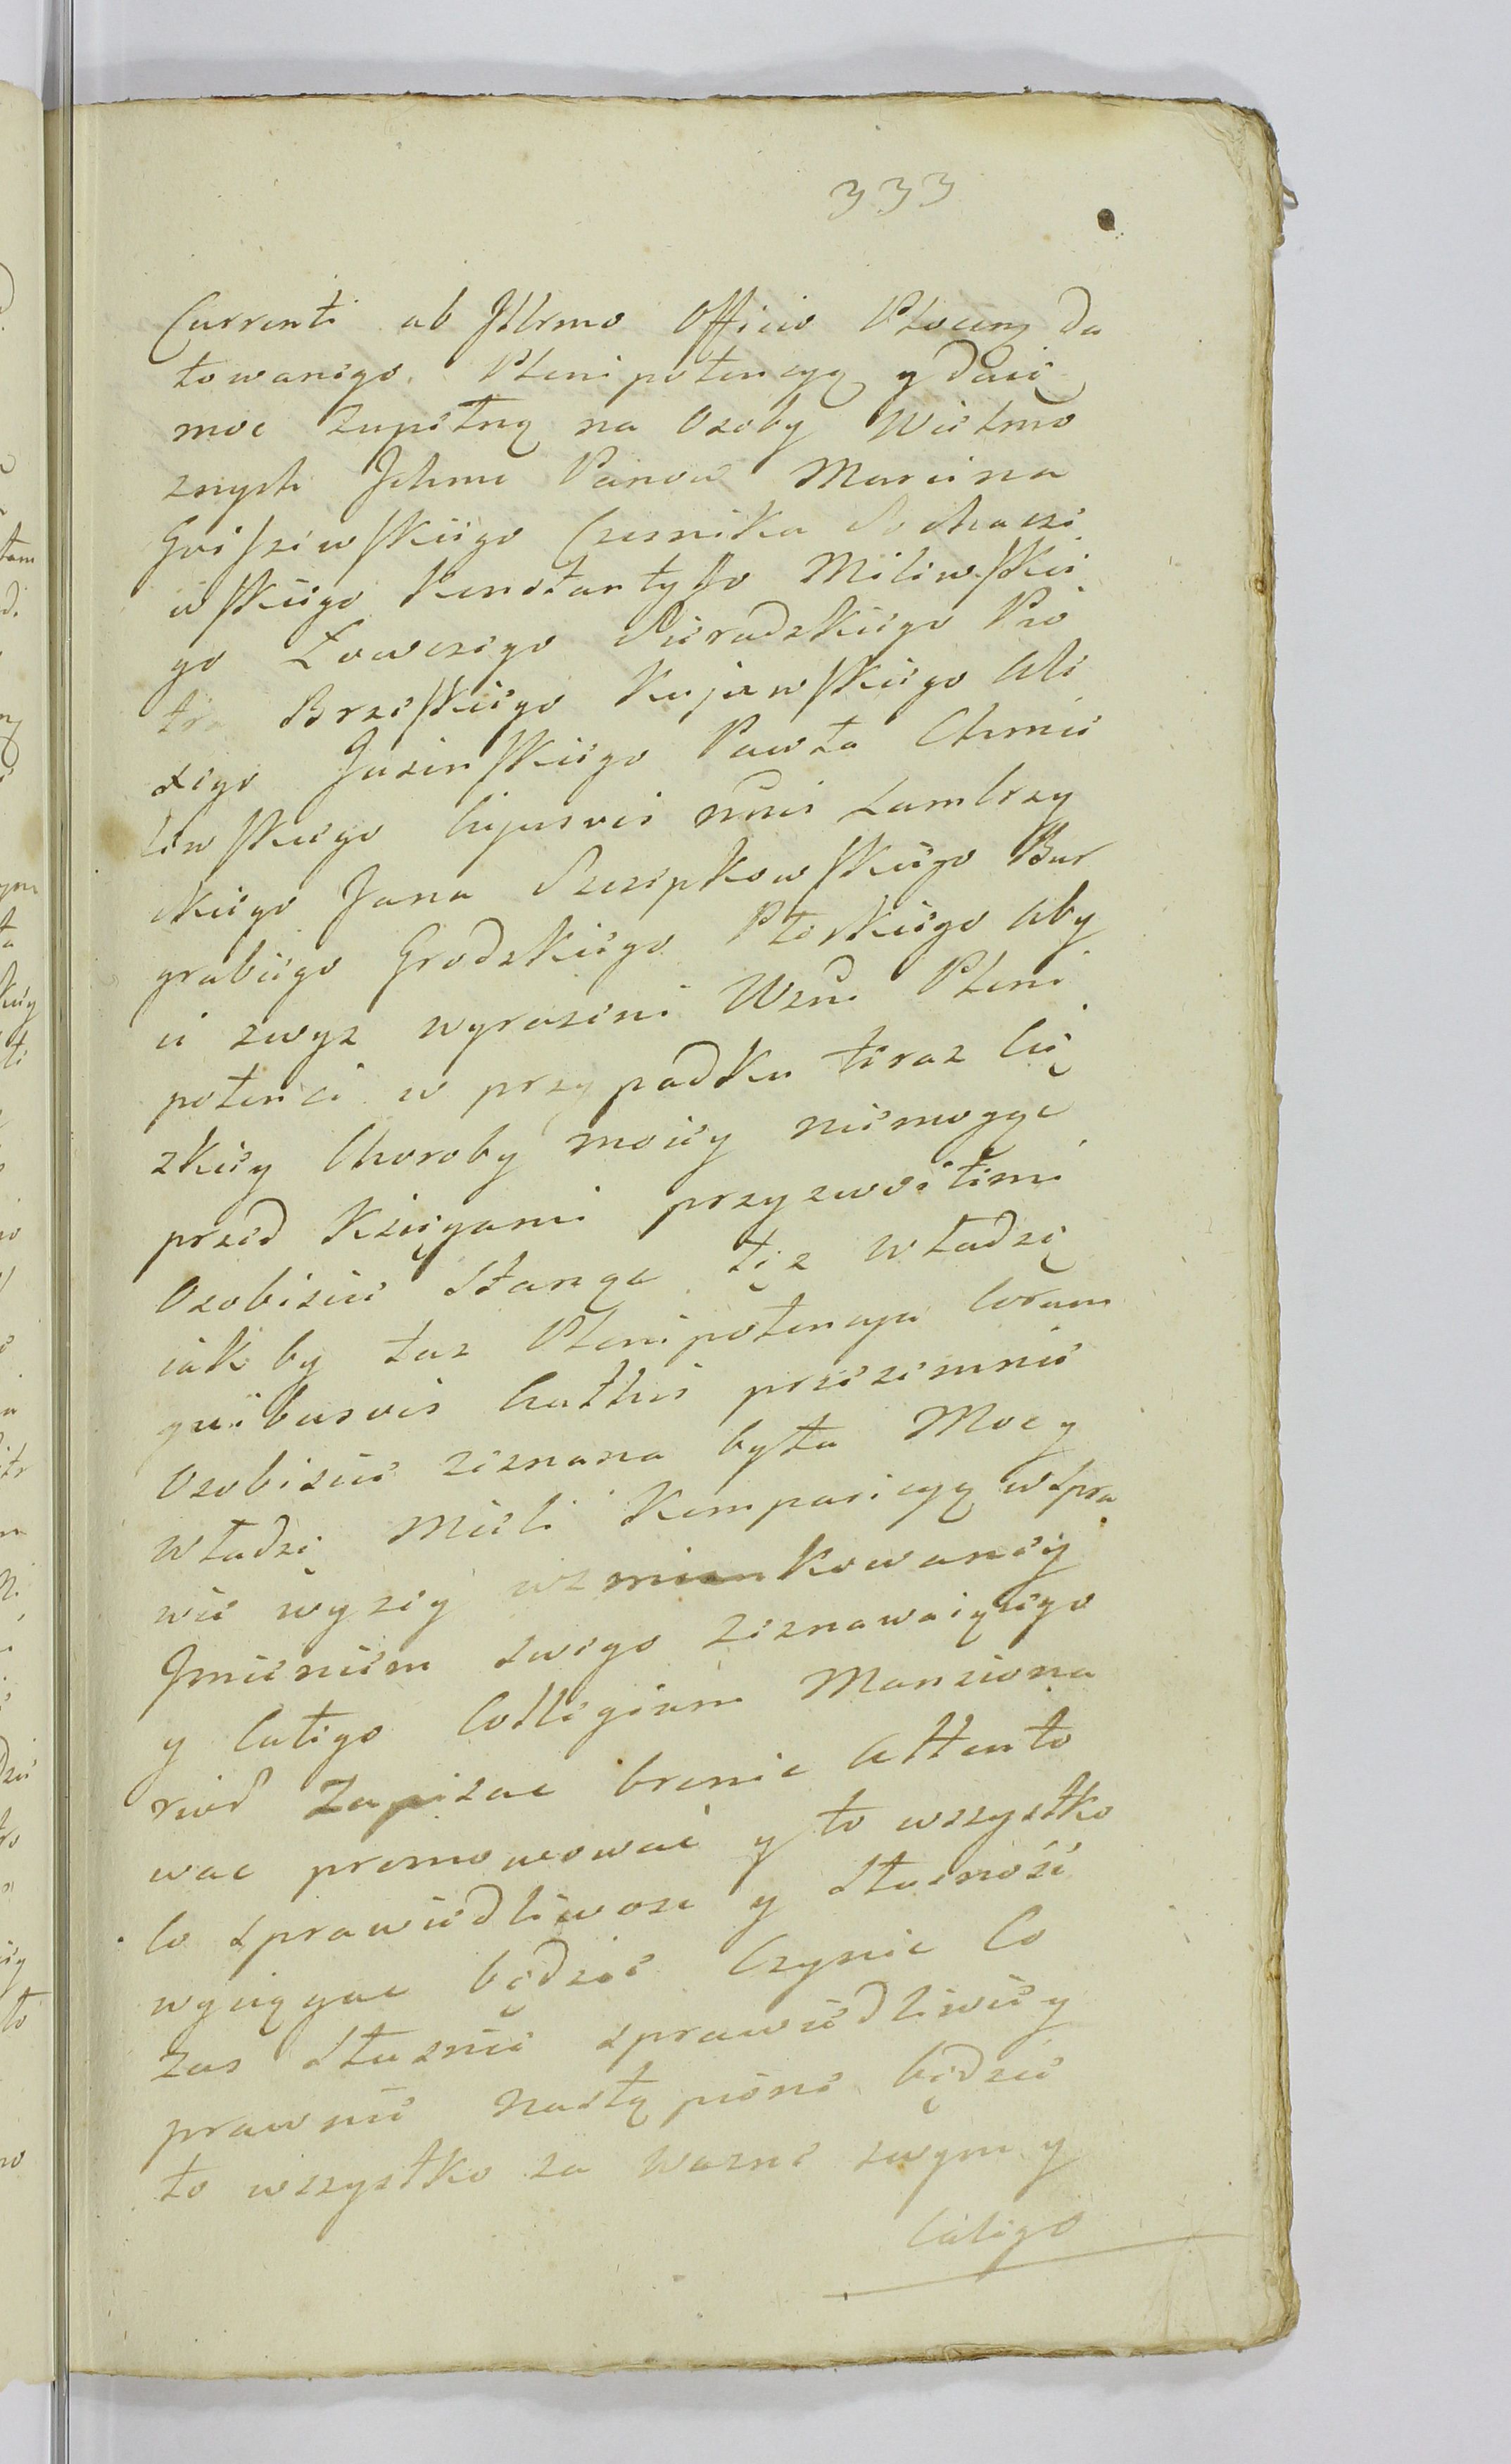 333
Currenti ab Jllrmo Officio Płocen̄ da
towanego. Plenipotencyą y daię
moc zupełną na Osoby Wielmo
znych Jchmc Panow Marcina
Goiszewskiego Czesnika Sochacze
wskiego KonstantyGo Milewskie
go Łowczego Sieradzkiego Pio
tra Brzeskiego Kujawskiego Ale
xego Jasinskiego Pawła Chmie
lewskiego hujusvis Zambrzy
ckiego Jana Szczepkowskiego Bur
grabiego Grodzkiego Płoskiego aby
ci zwyz wyrazeni Wzni Pleni
potenci w przypadku teraz Cię
zkiey Choroby moiey niemogąc
przed Xsięgami przyzwoitemi
Osobiscie Stanąc tęz władzę
iakby taz Plenipotencya Coram
quibusvis Acthis przezemnie
Osobiscie zeznana była Moc y
władzę Mieli Komparicyą w spra
wie wyzey wzmiankowaney
Jmieniem swego zeznawaiącego
y Całego Collegium Mansiona
riod Zapisac bronic Attento
wac promowować y to wszystko
co sprawiedliwosc y słusność
wyciągac będzie Czynic Co
zas słusznie sprawiedliwie y
prawnie nastąpione będzie
to wszystko za wazne swym y
Całego